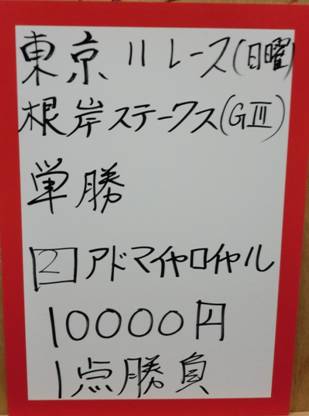 東京11レース(日曜)
根岸ステークス(GⅢ)
単勝
2 アドマイヤロイヤル
10000円
1点勝負